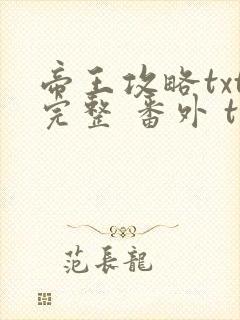 帝王攻略txt
完整 番外 t
范長龍